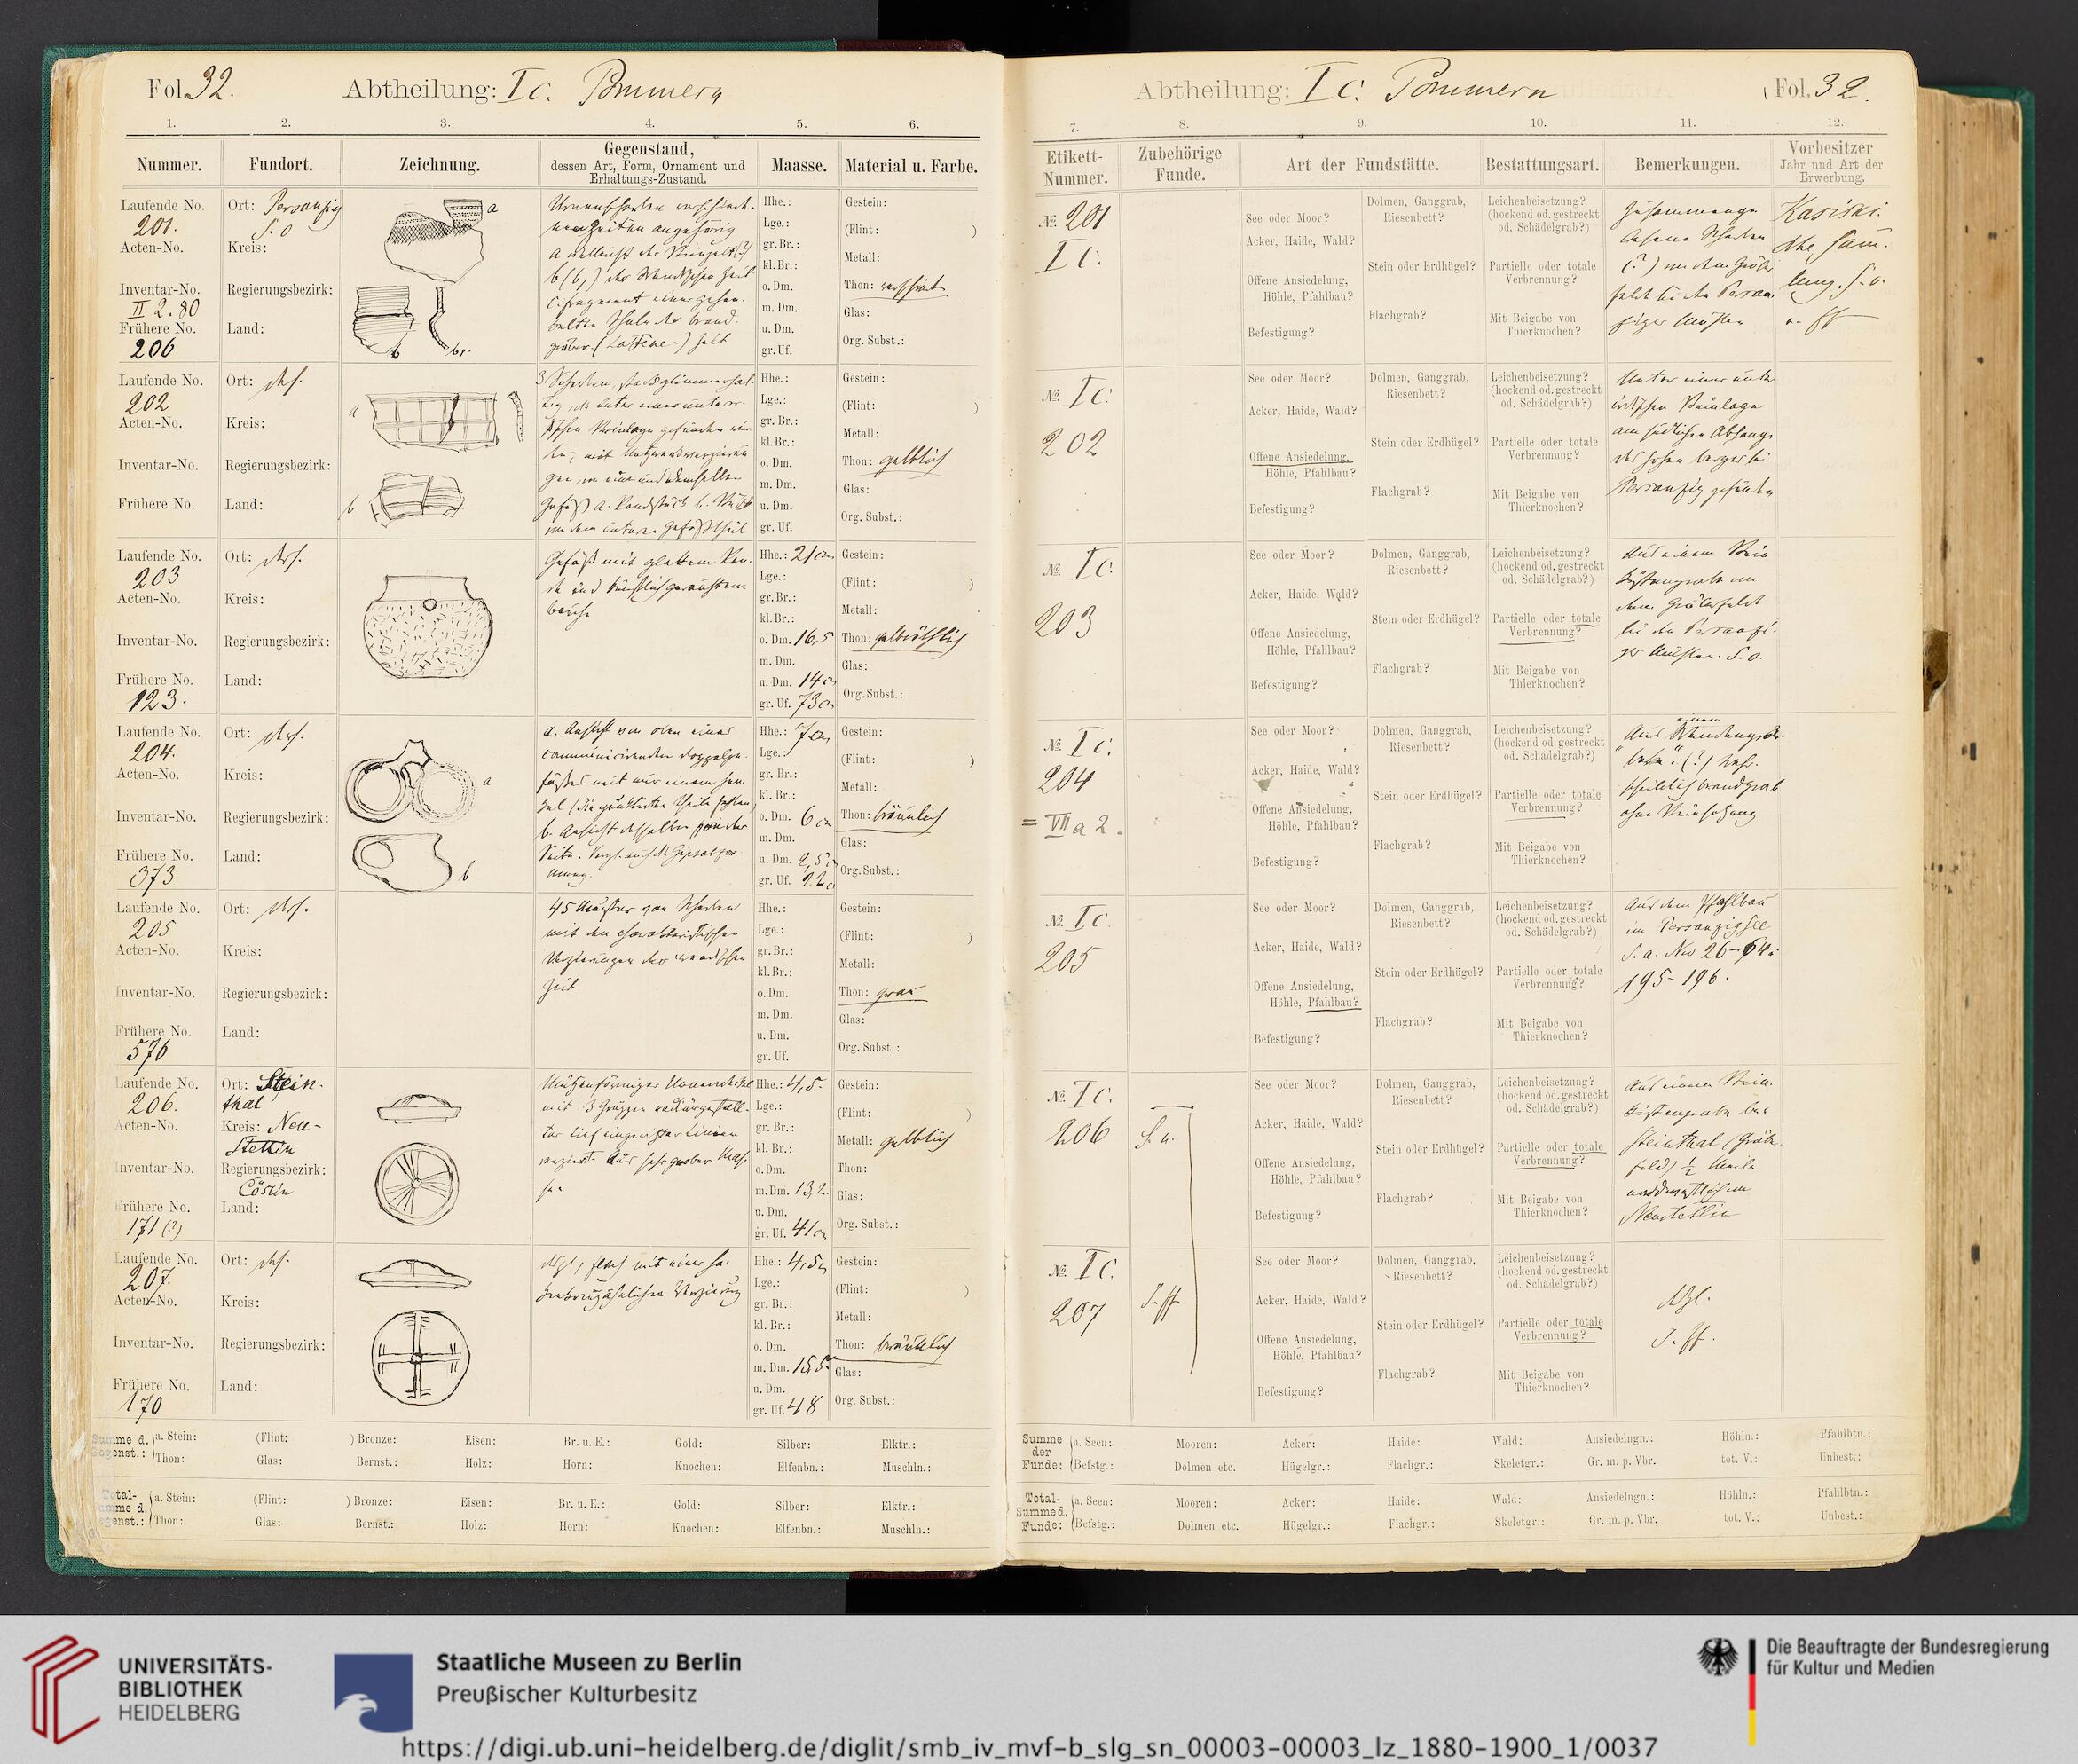 Fol. 32.
Abtheilung: I c. Pommern
1. 2. 3. 4. 5. 6.
Nummer. Fundort. Zeichnung. Gegenstand, dessen Art, Form, Ornament und Erhaltungs-Zustand. Maasse. Material u. Farbe.
Laufende No. 201.
Acten-No.
Inventar-No. II 2.80
Frühere No. 206
Ort: Persanzig s. o
Kreis:
Regierungsbezirk:
Land:
a
b b1.
Urnenscherben verschiede-
nen Zeiten angehörig
a vielleicht der Steinzeit (?)
b (b1) der Wendischen Zeit
c. Fragment einer gehen-
kelten Schale der Brand-
gräber- (La Tène-) Zeit
Hhe.:
Lge.:
gr. Br.:
kl. Br.:
o. Dm.
m. Dm.
u. Dm.
gr. Uf.
Gestein:
(Flint: )
Metall:
Thon:
Glas:
Org. Subst.:
Laufende No. 202
Acten-No.
Inventar-No.
Frühere No.
Ort: desgl.
Kreis:
Regierungsbezirk:
Land:
a
b
3 Scherben,
Hhe.:
Lge.:
gr. Br.:
kl. Br.:
o. Dm.
m. Dm.
u. Dm.
gr. Uf.
Gestein:
(Flint: )
Metall:
Thon: gelblich
Glas:
Org. Subst.:
Laufende No. 203
Acten-No.
Inventar-No.
Frühere No. 123.
Ort:
Kreis:
Regierungsbezirk:
Land:
Gefäß mit glattem Ran-
de und künstlich gerauhtem
Bauche
Hhe.: 21 cm
Lge.:
gr. Br.:
kl. Br.:
o. Dm. 16,5.
m. Dm.
u. Dm. 14 cm
gr. Uf. 73 cm
Gestein:
(Flint: )
Metall:
Thon: gelbröthlich
Glas:
Org. Subst.:
Laufende No. 204.
Acten-No.
Inventar-No.
Frühere No. 373
Ort:
Kreis:
Regierungsbezirk:
Land:
a
b
a. Ansicht von oben eines
communicirenden Doppelge-
fäßes mit nur einem Hen-
kel
Hhe.: 7 cm
Lge.:
gr. Br.:
kl. Br.:
o. Dm. 6 cm
m. Dm.
u. Dm. 2,5 c
gr. Uf. 22 c
Gestein:
(Flint: )
Metall:
Thon: bräunlich
Glas:
Org. Subst.:
Laufende No. 205
Acten-No.
Inventar-No.
Frühere No. 576
Ort:
Kreis:
Regierungsbezirk:
Land:
45 Muster von Scherben
mit den charakteristischen
Verzierungen der wendischen
Zeit
Hhe.:
Lge.:
gr. Br.:
kl. Br.:
o. Dm.
m. Dm.
u. Dm.
gr. Uf.
Gestein:
(Flint: )
Metall:
Thon: grau
Glas:
Org. Subst.:
Laufende No. 206.
Acten-No.
Inventar-No.
Frühere No. 171 (?)
Ort: Stein-
thal
Kreis: Neu-
Stettin
Regierungsbezirk:
Cöslin
Land:
Mützenförmiger Urnendeckel
mit 3 Gruppen radiärgestell-
ter tief eingeritzter Linien
verziert. Aus sehr grober Mas-
se.
Hhe.: 4,5.
Lge.:
gr. Br.:
kl. Br.:
o. Dm.
m. Dm. 13,2.
u. Dm.
gr. Uf. 41 cm
Gestein:
(Flint: )
Metall: gelblich
Thon:
Glas:
Org. Subst.:
Laufende No. 207.
Acten-No.
Inventar-No.
Frühere No. 170
Ort:
Kreis:
Regierungsbezirk:
Land:
dsgl., flach mit einer ha-
kenkreuzähnlichen Verzierung
Hhe.: 4,5 c
Lge.:
gr. Br.:
kl. Br.:
o. Dm.
m. Dm. 15,5.
u. Dm.
gr. Uf. 48
Gestein:
(Flint: )
Metall:
Thon: bräunlich
Glas:
Org. Subst.:
Summe d. Gegenst.: a. Stein: (Flint: ) Bronze: Eisen: Br. u. E.: Gold: Silber: Elktr.:
Thon: Glas: Bernst.: Holz: Horn: Knochen: Elfenbn.: Muschln.:
Total-Summe d. Gegenst.: a. Stein: (Flint: ) Bronze: Eisen: Br. u. E.: Gold: Silber: Elktr.:
Thon: Glas: Bernst.: Holz: Horn: Knochen: Elfenbn.: Muschln.:
Abtheilung: I c. Pommern
Fol. 32.
7. 8. 9. 10. 11. 12.
Etikett-Nummer. Zubehörige Funde. Art der Fundstätte. Bestattungsart. Bemerkungen. Vorbesitzer Jahr und Art der Erwerbung.
№ 201
I c.
See oder Moor?
Acker, Haide, Wald?
Offene Ansiedelung, Höhle, Pfahlbau?
Befestigung?
Dolmen, Ganggrab, Riesenbett?
Stein oder Erdhügel?
Flachgrab?
Leichenbeisetzung? (hockend od. gestreckt od. Schädelgrab?)
Partielle oder totale Verbrennung?
Mit Beigabe von Thierknochen?
Zusammenge-
lesene Scherben
(?) von dem Gräber-
felde bei der Persan-
ziger Mühle
Kasiski.
sche Sam-
lung. s. o.
u. ff
№ I c.
202
See oder Moor?
Acker, Haide, Wald?
Offene Ansiedelung, Höhle, Pfahlbau?
Befestigung?
Dolmen, Ganggrab, Riesenbett?
Stein oder Erdhügel?
Flachgrab?
Leichenbeisetzung? (hockend od. gestreckt od. Schädelgrab?)
Partielle oder totale Verbrennung?
Mit Beigabe von Thierknochen?
Unter einer unter-
irdischen Steinlage
am südlichen Abhange
des hohen Berges bei
Persanzig gefunden
№ I c.
203
See oder Moor?
Acker, Haide, Wald?
Offene Ansiedelung, Höhle, Pfahlbau?
Befestigung?
Dolmen, Ganggrab, Riesenbett?
Stein oder Erdhügel?
Flachgrab?
Leichenbeisetzung? (hockend od. gestreckt od. Schädelgrab?)
Partielle oder totale Verbrennung?
Mit Beigabe von Thierknochen?
Aus einem Stein-
kistengrabe von
dem Gräberfeld
bei der Persanzi-
ger Mühle. s. o.
№ I c.
204
= VII a 2.
See oder Moor?
Acker, Haide, Wald?
Offene Ansiedelung, Höhle, Pfahlbau?
Befestigung?
Dolmen, Ganggrab, Riesenbett?
Stein oder Erdhügel?
Flachgrab?
Leichenbeisetzung? (hockend od. gestreckt od. Schädelgrab?)
Partielle oder totale Verbrennung?
Mit Beigabe von Thierknochen?
Aus einem „Wendengra-
be“ (?) wahr-
scheinlich Brandgrab
ohne Steinsetzung
№ I c.
205
See oder Moor?
Acker, Haide, Wald?
Offene Ansiedelung, Höhle, Pfahlbau?
Befestigung?
Dolmen, Ganggrab, Riesenbett?
Stein oder Erdhügel?
Flachgrab?
Leichenbeisetzung? (hockend od. gestreckt od. Schädelgrab?)
Partielle oder totale Verbrennung?
Mit Beigabe von Thierknochen?
Aus dem Pfahlbau
im Persanzigsee
195-196.
№ I c.
206
s. u.
See oder Moor?
Acker, Haide, Wald?
Offene Ansiedelung, Höhle, Pfahlbau?
Befestigung?
Dolmen, Ganggrab, Riesenbett?
Stein oder Erdhügel?
Flachgrab?
Leichenbeisetzung? (hockend od. gestreckt od. Schädelgrab?)
Partielle oder totale Verbrennung?
Mit Beigabe von Thierknochen?
Aus einem Stein-
kistengrabe bei
Steinthal (Gräber-
feld) ½ Meile
nordwestlich von
Neustettin
№ I c.
207
s. ff
See oder Moor?
Acker, Haide, Wald?
Offene Ansiedelung, Höhle, Pfahlbau?
Befestigung?
Dolmen, Ganggrab, Riesenbett?
Stein oder Erdhügel?
Flachgrab?
Leichenbeisetzung? (hockend od. gestreckt od. Schädelgrab?)
Partielle oder totale Verbrennung?
Mit Beigabe von Thierknochen?
dsgl.
s. ff.
Summe der Funde: a. Seen: Mooren: Acker: Haide: Wald: Ansiedelngn.: Höhln.: Pfahlbtn.:
Befstg.: Dolmen etc. Hügelgr.: Flachgr.: Skeletgr.: Gr. m. p. Vbr. tot. V.: Unbest.:
Total-Summe d. Funde: a. Seen: Mooren: Acker: Haide: Wald: Ansiedelngn.: Höhln.: Pfahlbtn.:
Befstg.: Dolmen etc. Hügelgr.: Flachgr.: Skeletgr.: Gr. m. p. Vbr. tot. V.: Unbest.:
UNIVERSITÄTS-
BIBLIOTHEK
HEIDELBERG
Staatliche Museen zu Berlin
Preußischer Kulturbesitz
Die Beauftragte der Bundesregierung
für Kultur und Medien
https://digi.ub.uni-heidelberg.de/diglit/smb_iv_mvf-b_slg_sn_00003-00003_lz_1880-1900_1/0037